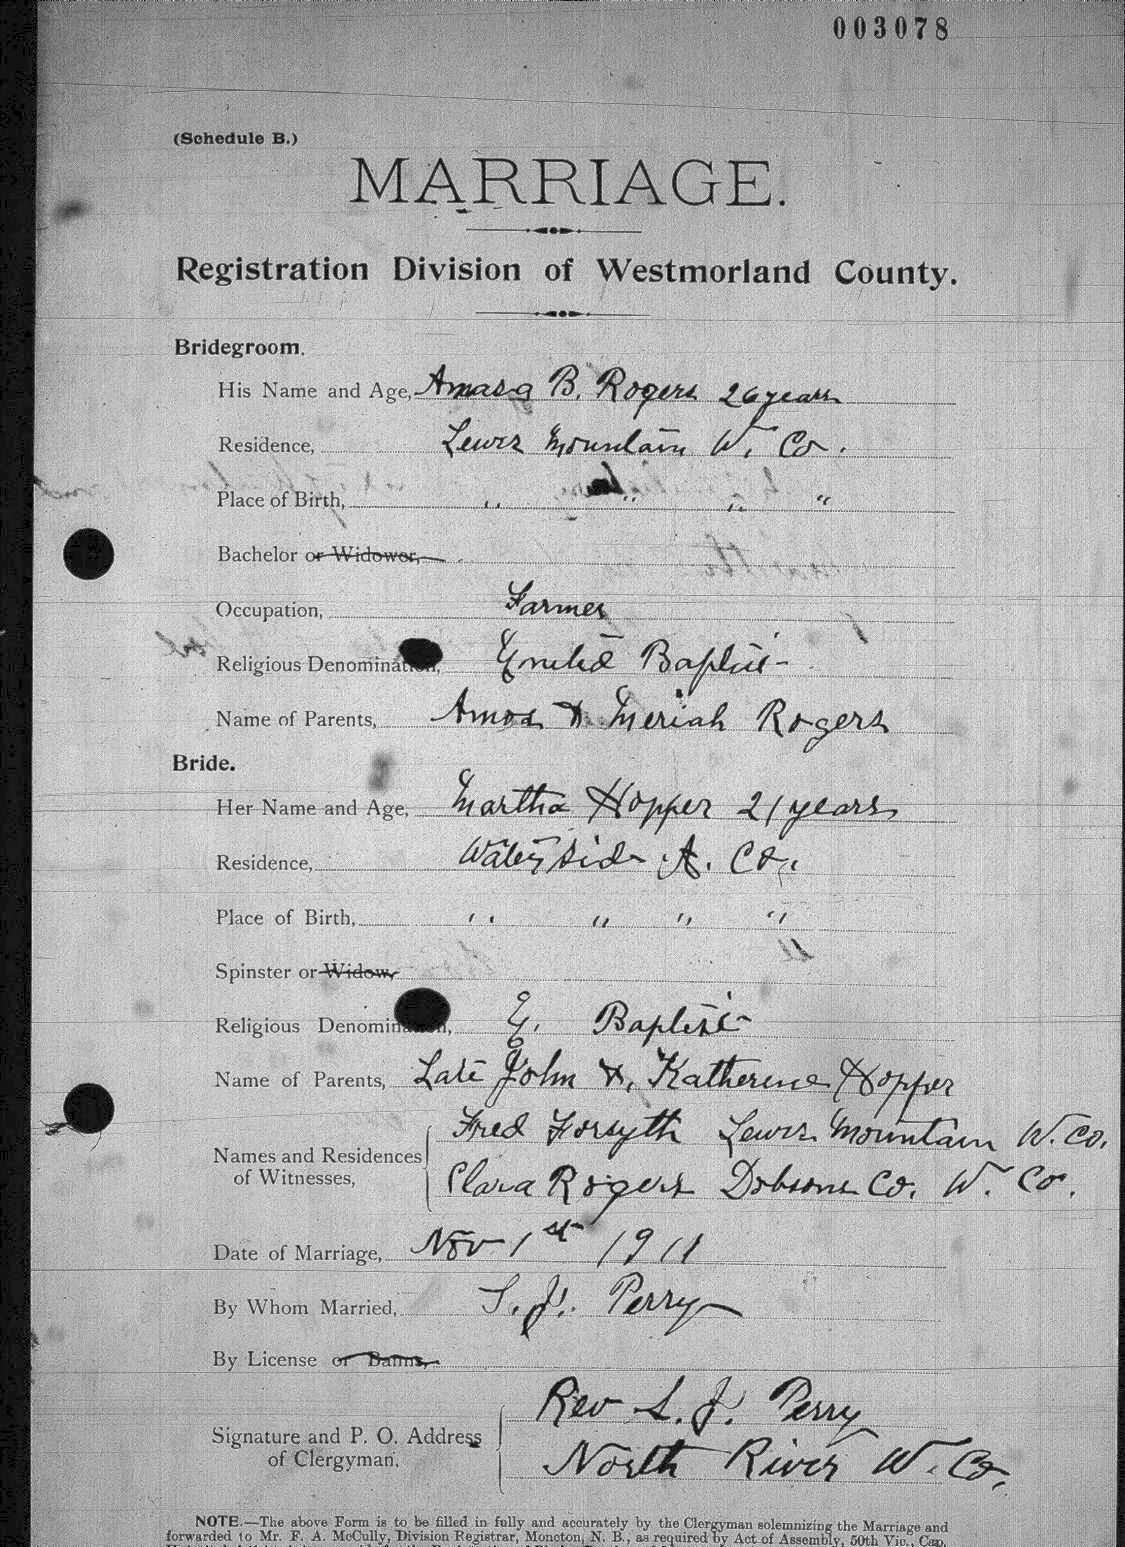 003078
(Schedule B.)
MARRIAGE.
Registration Division of Westmorland County.
Bridegroom.
His Name and Age, Amasa B. Rogers 26 years
Residence, Lewis Mountain W. Co.
Place of Birth, " " " "
Bachelor or Widower,
Occupation, Farmer
Religious Denomination, United Baptist
Name of Parents, Amos & Meriah Rogers
Bride.
Her Name and Age, Martha Hopper 21 years
Residence, Waterside A. Co.
Place of Birth, " " " "
Spinster or Widow,
Religious Denomination, U. Baptist
Name of Parents, Late John & Katherine Hopper
Names and Residences of Witnesses,
Fred Forsyth Lewis Mountain W. Co.
Clara Rogers Dobsons Co. W. Co.
Date of Marriage, Nov 1st 1911
By Whom Married, S. J. Perry
By License or Banns,
Signature and P. O. Address of Clergyman,
Rev S. J. Perry
North River W. Co.
NOTE.—The above Form is to be filled in fully and accurately by the Clergyman solemnizing the Marriage and
forwarded to Mr. F. A. McCully, Division Registrar, Moncton, N. B., as required by Act of Assembly, 50th Vic., Cap.